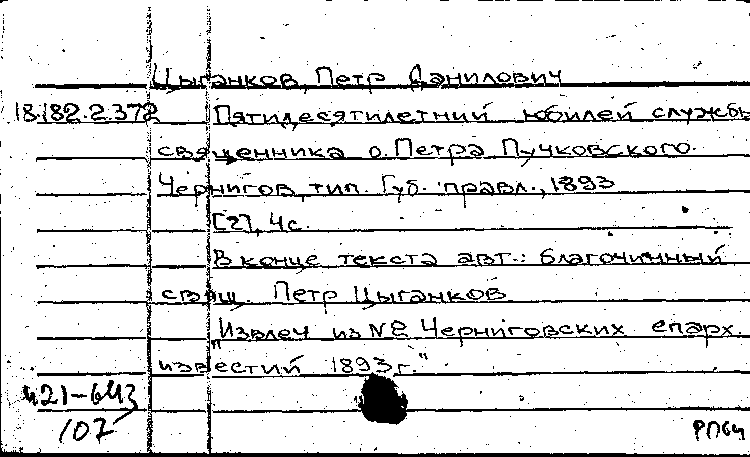 Цыганков, Петр Данилович
18.182.2.372 Пятидесятилетний юбилей службы
священника о. Петра Пучковского.
Чернигов, тип. Губ. правл., 1893
[2], 4 с.
В конце текста авт.: благочинный
свящ. Петр Цыганков
"Извлеч из № 8 Черниговских епарх.
известий 1893 г."
421-643
107
РПБч